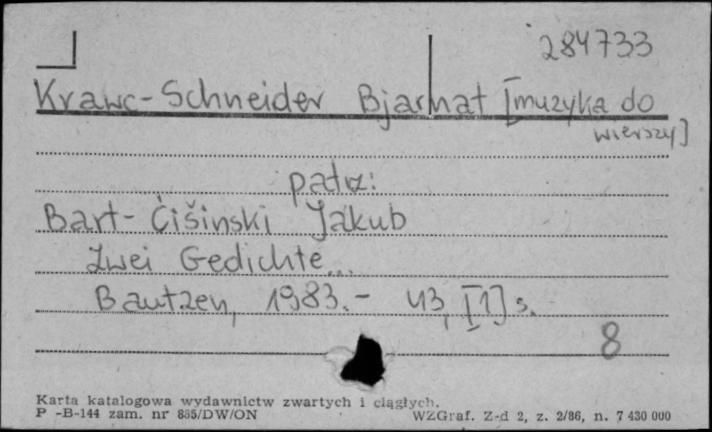 284733
Krawc-Schneider Bjarnat [muzyka do
wierszy]
patrz:
Bart-Ćišinski Jakub
Zwei Gedichte...
Bautzen, 1983.- 43, [1] s.
8
Karta katalogowa wydawnictw zwartych i ciągłych.
P -B-144 zam. nr 885/DW/ON WZGraf. Z-d 2, z. 2/86, n. 7 430 000